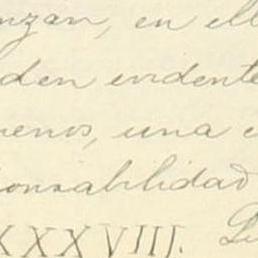 nzan, en ell
den evidente
menos, una e
onsabilidad
XXXVIII. Lu